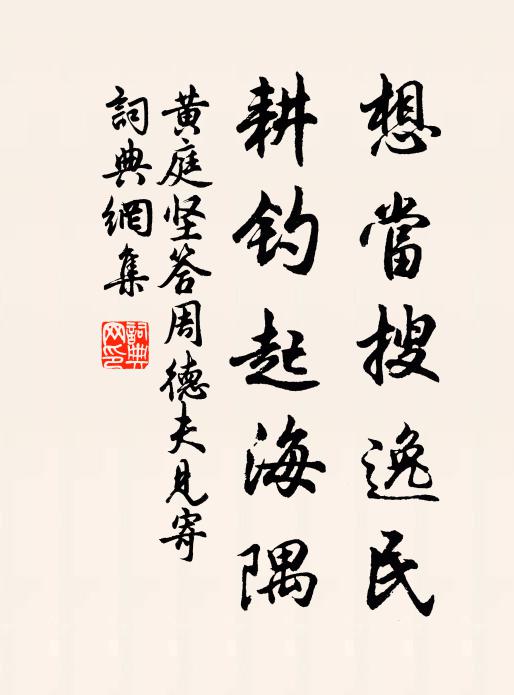 想當搜逸民
耕钓起海隅
黄庭坚答周德夫見寄
詞典網集
詞典網印